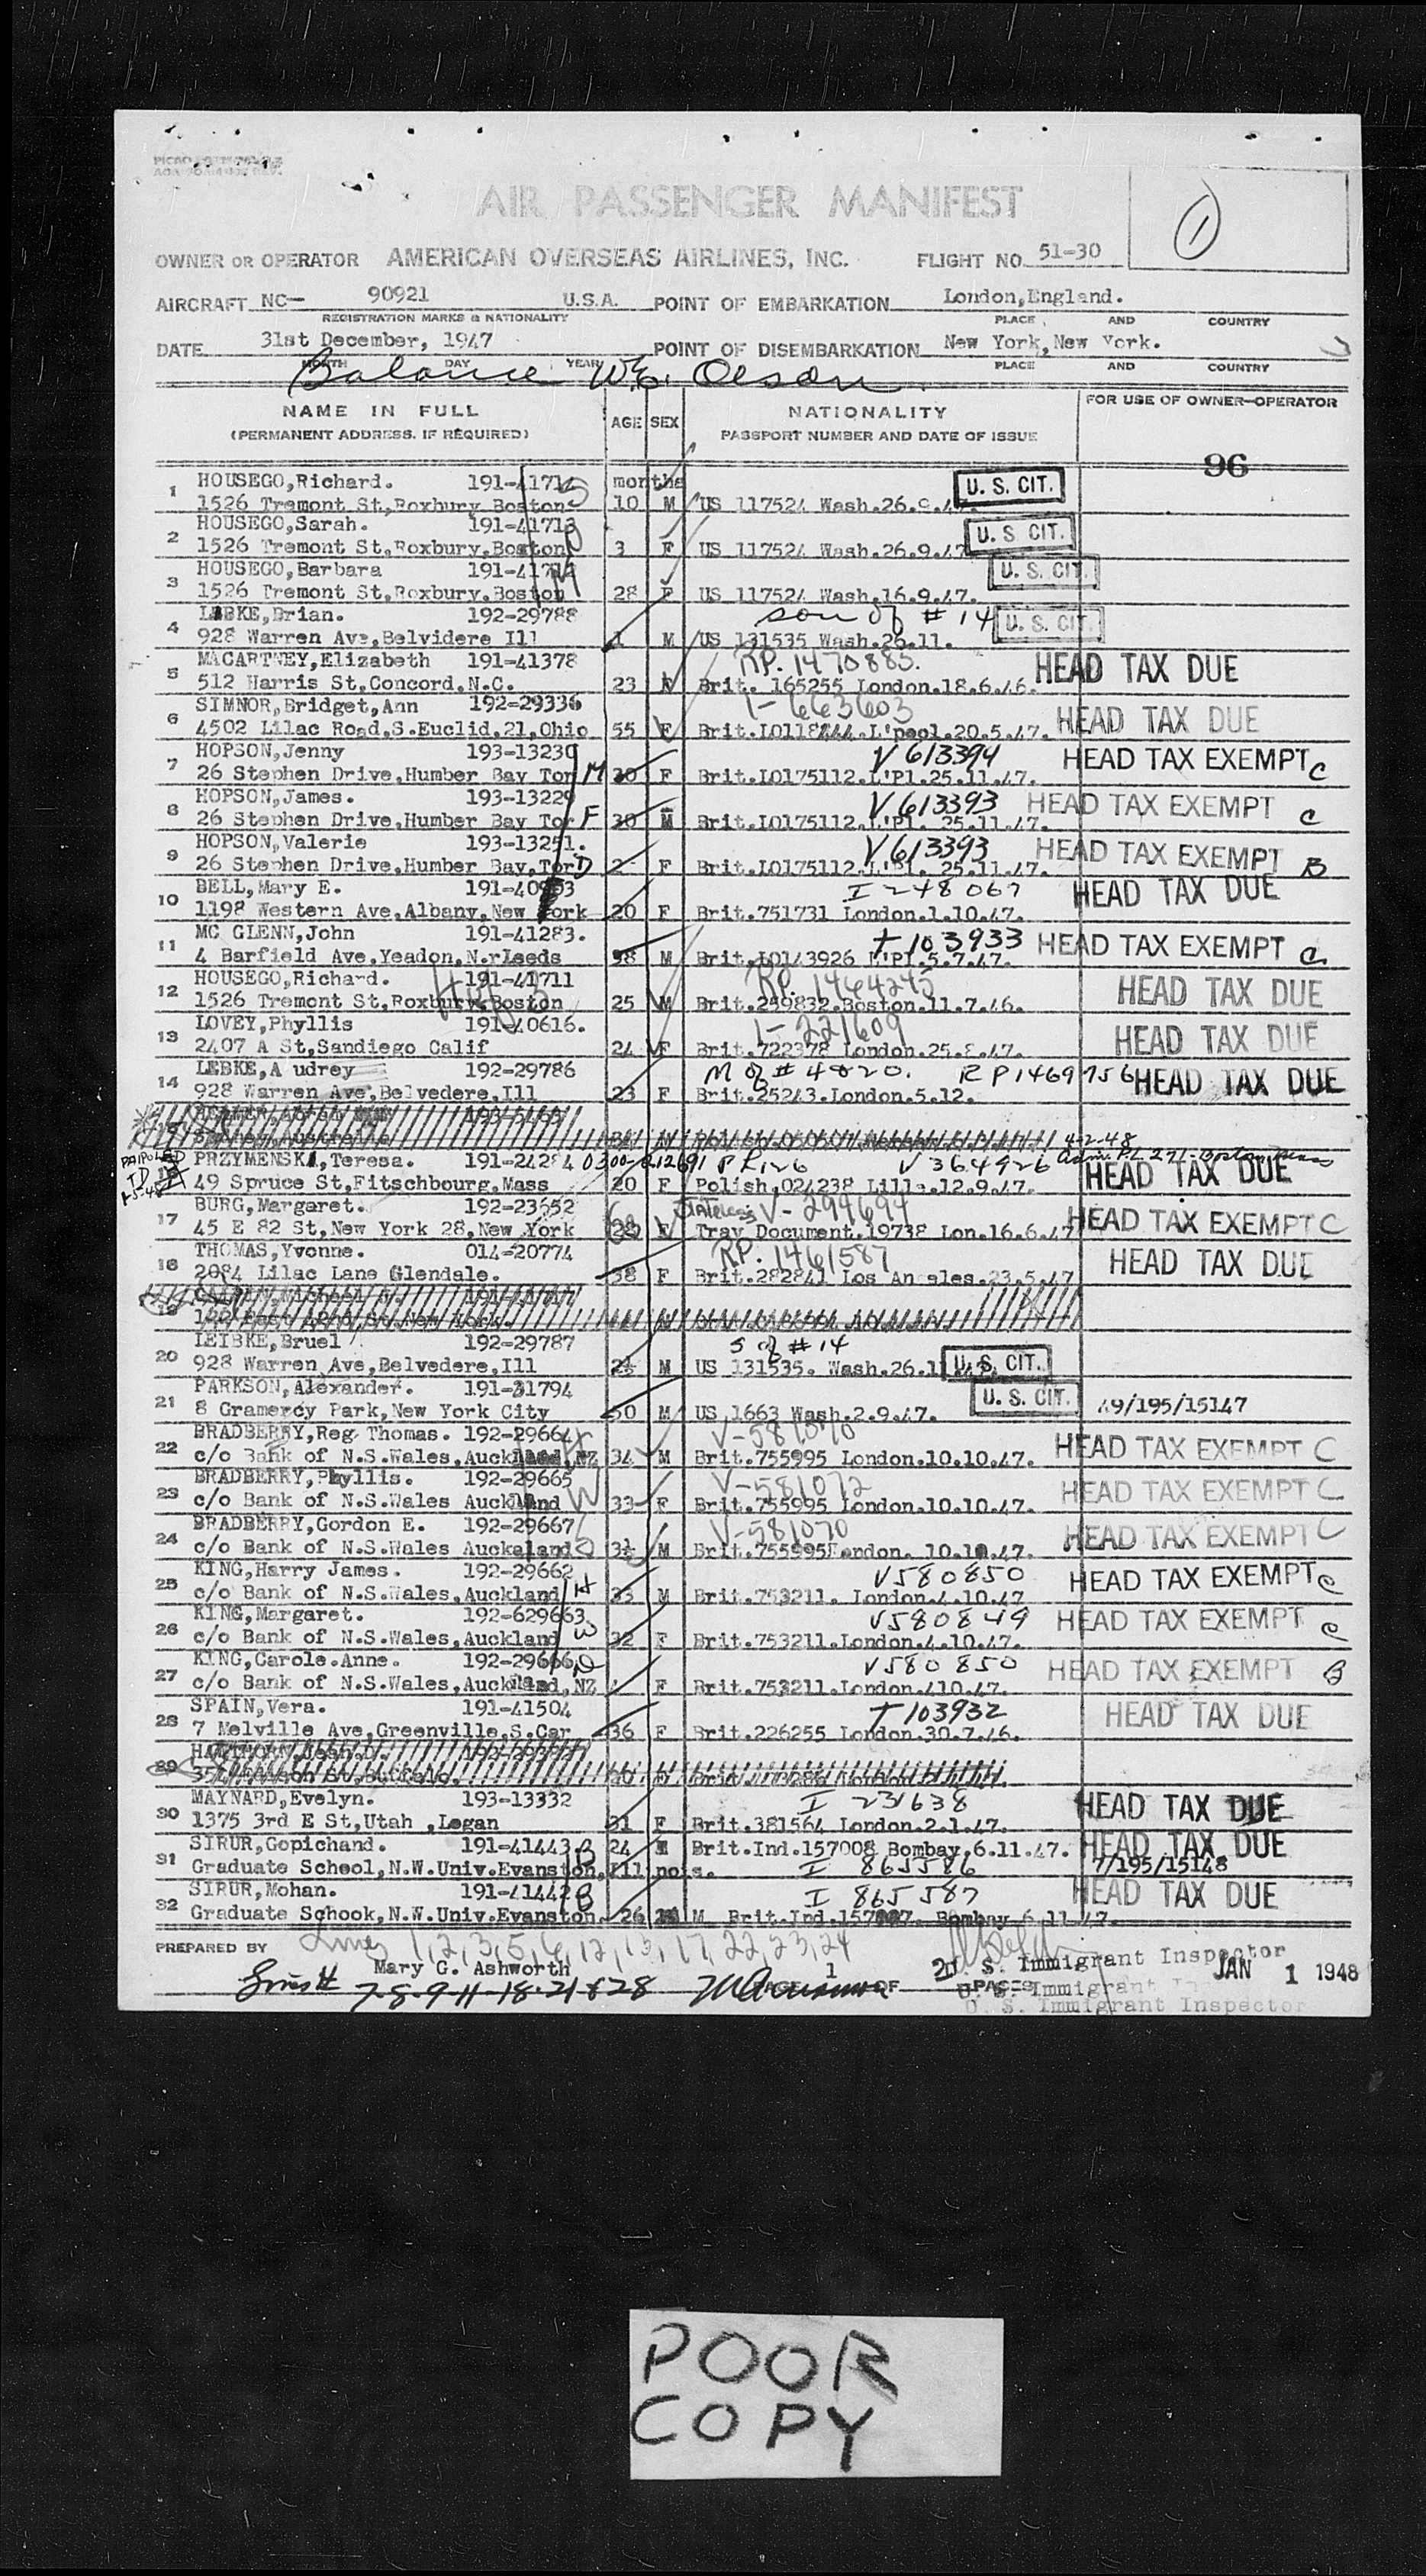 AIR PASSENGER MANIFEST
1
OWNER OR OPERATOR AMERICAN OVERSEAS AIRLINES, INC. FLIGHT NO. 51-30
AIRCRAFT NC- 90921 U.S.A. POINT OF EMBARKATION London,England.
REGISTRATION MARKS & NATIONALITY PLACE AND COUNTRY
DATE 31st December, 1947 POINT OF DISEMBARKATION New York,New York.
MONTH DAY YEAR PLACE AND COUNTRY
Balance W.E. Olson
NAME IN FULL AGE SEX NATIONALITY FOR USE OF OWNER-OPERATOR
(PERMANENT ADDRESS. IF REQUIRED) PASSPORT NUMBER AND DATE OF ISSUE
96
1 HOUSEGO,Richard. months U. S. CIT.
1526 Tremont St,Roxbury Boston 10 M US 117524 Wash.26.9.47.
2 HOUSEGO,Sarah. 191-41713 U. S. CIT.
1526 Tremont St,Roxbury,Boston 3 F US 117524 Wash.26.9.47
3 HOUSEGO,Barbara U. S. CIT.
1526 Tremont St,Roxbury,Boston 28 F US 117524 Wash.16.9.47.
4 LEBKE,Brian. 192-29788 son of # 14 U. S. CIT.
928 Warren Ave,Belvidere Ill 1 M US 131535 Wash.26.11.
5 MACARTNEY,Elizabeth 191-41378 RP. 1470885. HEAD TAX DUE
512 Harris St,Concord,N.C. 23 F Brit. 165255 London.18.6.46.
6 SIMNOR,Bridget,Ann 192-29336 I-663603 HEAD TAX DUE
4502 Lilac Road,S.Euclid,21,Ohio 55 F L'pool.20.5.47.
7 HOPSON,Jenny 193-13230 V 613394 HEAD TAX EXEMPT C
26 Stephen Drive,Humber Bay Tor M 30 F Brit.LO175112.L'Pl.25.11.47.
8 HOPSON,James. 193-13229 V 613393 HEAD TAX EXEMPT C
26 Stephen Drive,Humber Bay Tor F 30 M Brit.LO175112.L'Pl. 25.11.47.
9 HOPSON,Valerie 193-13231. V 613393 HEAD TAX EXEMPT B
26 Stephen Drive,Humber Bay,Tor D F Brit.LO175112.L'Pl. 25.11.47.
10 BELL,Mary E. I 248067 HEAD TAX DUE
1198 Western Ave,Albany,New York 20 F Brit.751731 London.1.10.47.
11 MC GLENN,John 191-41283. T 103933 HEAD TAX EXEMPT C
4 Barfield Ave,Yeadon,N.rLeeds 98 M Brit.LO143926 L'Pl.5.7.47.
12 HOUSEGO,Richard. 191-41711 RP. 1464245 HEAD TAX DUE
1526 Tremont St,Roxbury,Boston 25 M Brit.259832.Boston.11.7.46.
13 LOVEY,Phyllis 191-40616. I-221609 HEAD TAX DUE
2407 A St,Sandiego Calif 24 F Brit.722378 London.25.8.47.
14 LEBKE,A udrey 192-29786 M of # 4&20. RP1469756 HEAD TAX DUE
928 Warren Ave,Belvedere,Ill 23 F Brit.25243.London.5.12.
4-2-48
PAROLED
PRZYMENSKI,Teresa. 191-24284 0300-212691 PL126 V 364926 HEAD TAX DUE
49 Spruce St,Fitschbourg,Mass 20 F Polish,024238 Lille.12.9.47.
17 BURG,Margaret. 192-23652 Stateless V-294694 HEAD TAX EXEMPT C
45 E 82 St,New York 28,New York F Trav Document.19738 Lon.16.6.47
18 THOMAS,Yvonne. 014-20774 RP. 1461587 HEAD TAX DUE
2084 Lilac Lane Glendale. 38 F Brit.282841 Los Angeles.23.5.47
19
20 LEIBKE,Bruel 192-29787 S of #14
928 Warren Ave,Belvedere,Ill 2½ M US 131535. Wash.26.11 U. S. CIT.
21 PARKSON,Alexander. 191-31794 U. S. CIT. 49/195/15147
8 Gramercy Park,New York City 50 M US 1663 Wash.2.9.47.
22 BRADBERRY,Reg Thomas. 192-29664 HEAD TAX EXEMPT C
c/o Bank of N.S.Wales,Auckland,NZ 34 M Brit.755995 London.10.10.47.
23 BRADBERRY,Phyllis. 192-29665 V-581072 HEAD TAX EXEMPT C
c/o Bank of N.S.Wales Auckland W 33 F Brit.755995 London.10.10.47.
24 BRADBERRY,Gordon E. 192-29667 V-581070 HEAD TAX EXEMPT C
c/o Bank of N.S.Wales Auckaland 3½ M Brit.755995London. 10.10.47.
25 KING,Harry James. 192-29662 V580850 HEAD TAX EXEMPT C
c/o Bank of N.S.Wales,Auckland H 35 M Brit.753211. London.4.10.47
26 KING,Margaret. 192-629663 V580849 HEAD TAX EXEMPT C
c/o Bank of N.S.Wales,Auckland W 32 F Brit.753211.London.4.10.47.
27 KING,Carole.Anne. 192-29666 D V580850 HEAD TAX EXEMPT B
c/o Bank of N.S.Wales,Auckland,NZ F Brit.753211.London.410.47.
28 SPAIN,Vera. 191-41504 T 103932 HEAD TAX DUE
7 Melville Ave,Greenville,S.Car 36 F Brit.226255 London.30.7.46.
29
30 MAYNARD,Evelyn. 193-13332 I 231638 HEAD TAX DUE
1375 3rd E St,Utah ,Logan 31 F Brit.381564 London.2.1.47.
31 SIRUR,Gopichand. 191-41443 B 24 M Brit.Ind.157008 Bombay.6.11.47. HEAD TAX DUE
Graduate School,N.W.Univ.Evanston,Illinois. I 865586 7/195/15148
32 SIRUR,Mohan. 191-41442 B I 865587 HEAD TAX DUE
Graduate Schook,N.W.Univ.Evanston. 26 M Brit.Ind. Bombay 6.11.47.
PREPARED BY Lines 1,2,3,5,6,12,13,17,22,23,24
Mary C. Ashworth U. S. Immigrant Inspector
Lines # 7-8-9-11-18-21&28 PAGE 1 OF 2 PAGES JAN 1 1948
U. S. Immigrant Inspector
POOR
COPY